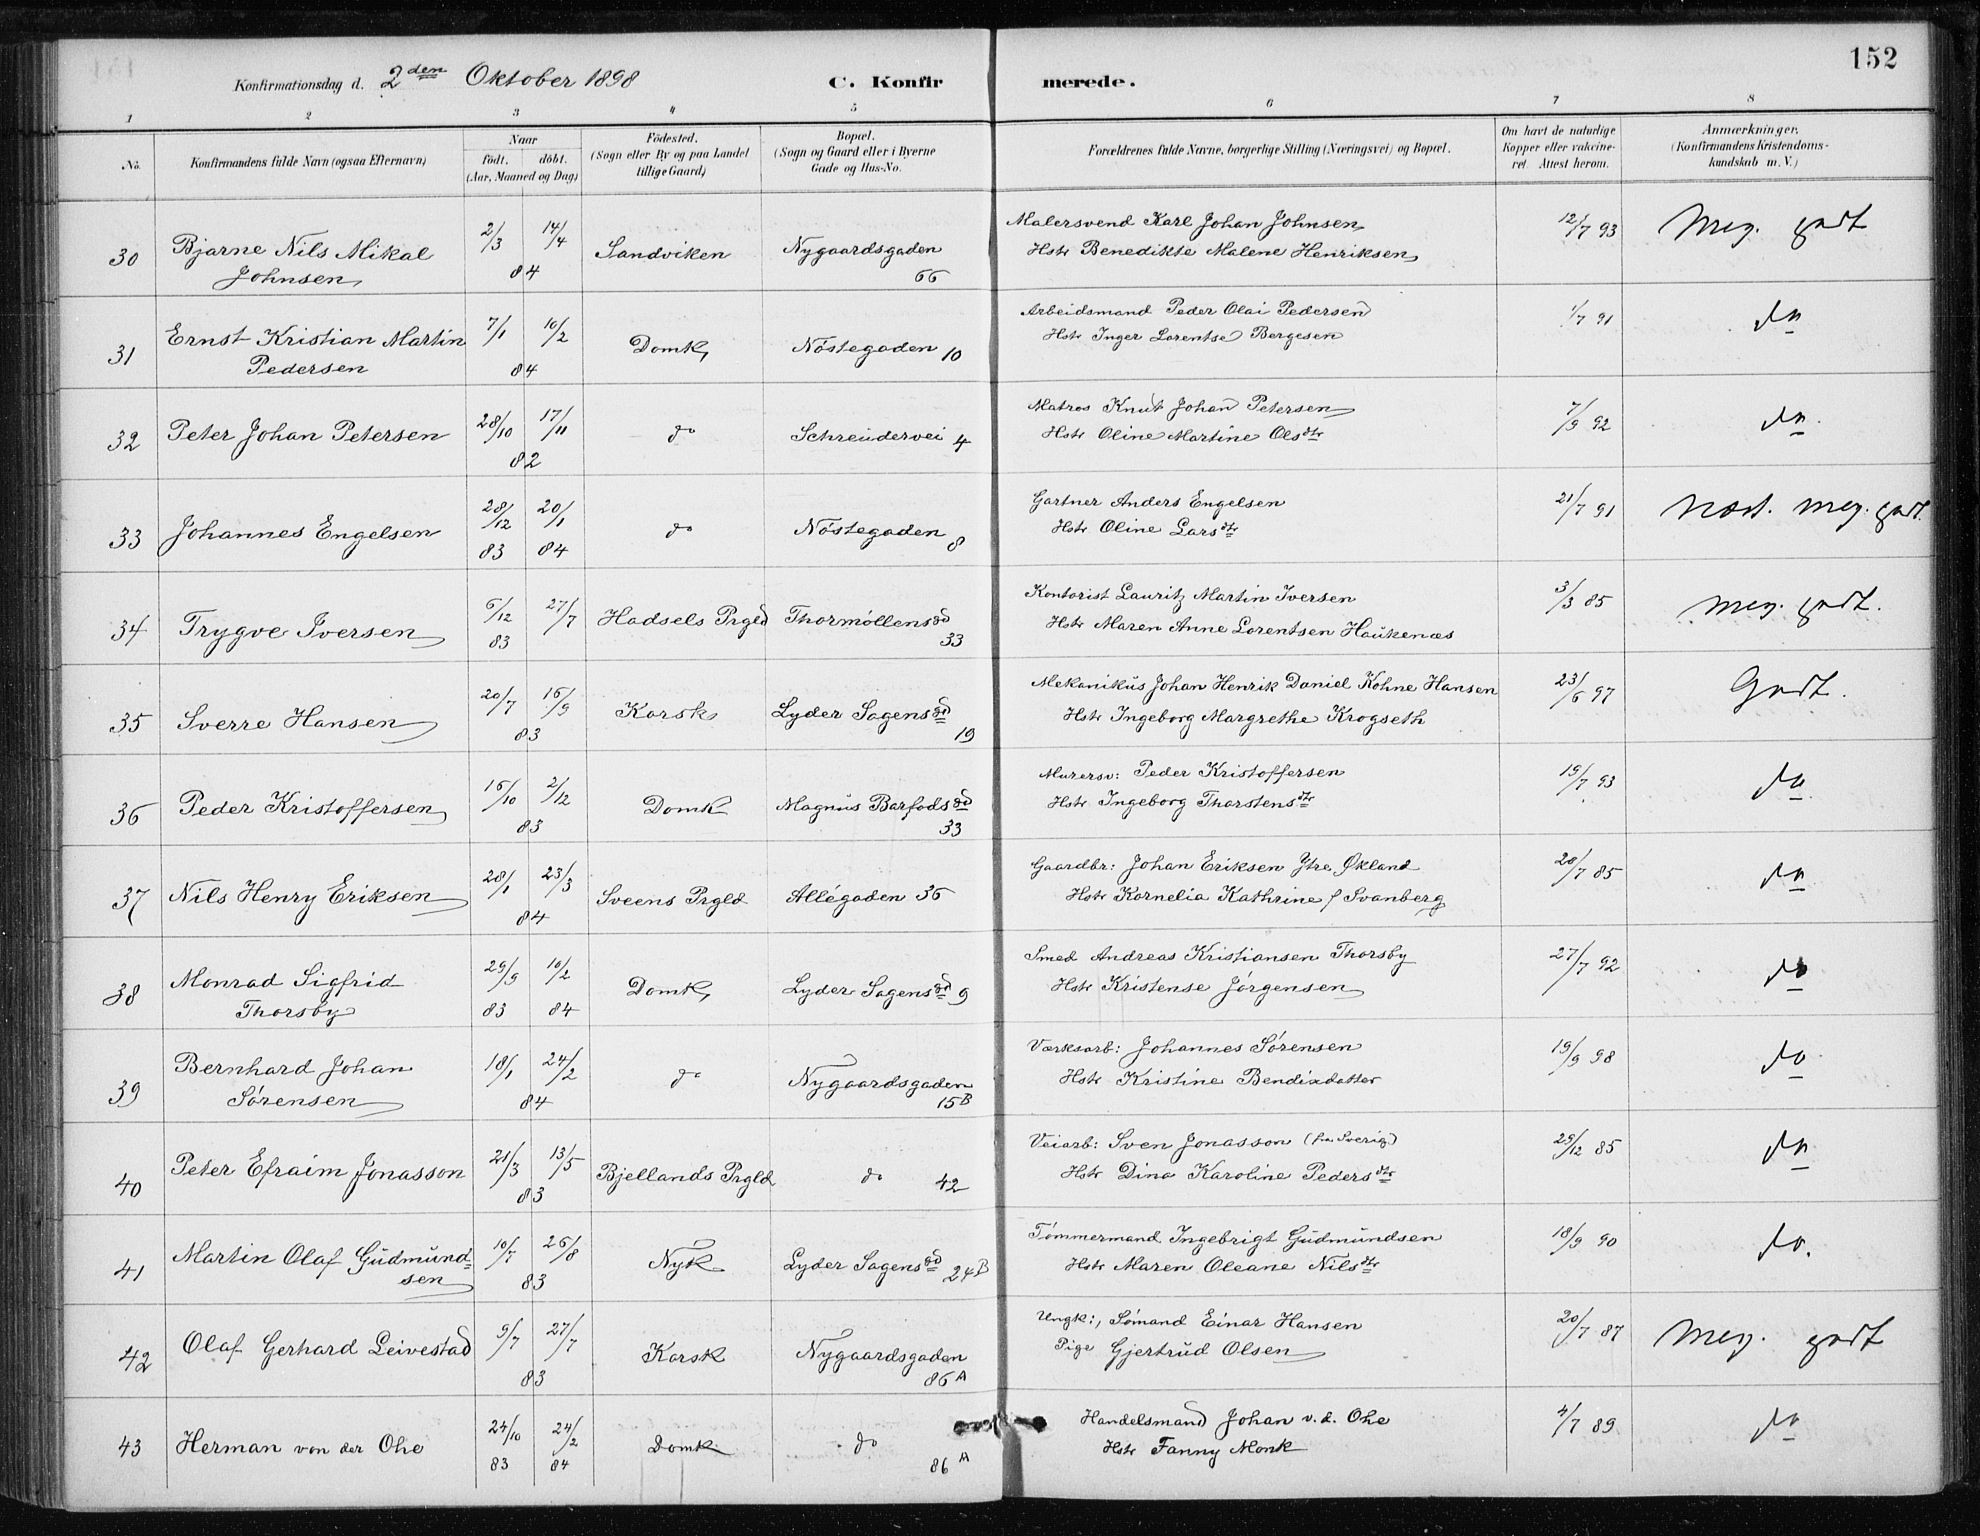 152
Konfirmationsdag d. 2den Oktober 1898 C. Konfirmerede.
1 2 3 4 5 6 7 8
No. Konfirmandens fulde Navn (ogsaa Efternavn) Naar födt. döbt. (Aar, Maaned og Dag) Födested. (Sogn eller By og paa Landet tillige Gaard) Bopæl. (Sogn og Gaard eller i Byerne Gade og Hus-No. Forældrenes fulde Navne, borgerlige Stilling (Næringsvei) og Bopæl. Om havt de naturlige Kopper eller vakcineret. Attest herom. Anmærkninger. (Konfirmandens Kristendomskundskab m. V.)
30 Bjarne Nils Mikal Johnsen 2/3 14/4 84 Sandviken Nygaardsgaden 66 Malersvend Karl Johan Johnsen 12/7 93 Meg. godt
Hstr Benedikte Malene Henriksen
31 Ernst Kristian Martin Pedersen 7/1 10/2 84 Domk Nöstegaden 10 Arbeidsmand Peder Olai Pedersen 1/7 91 do
Hstr Inger Lorentse Bergesen
32 Peter Johan Petersen 28/10 17/11 82 do Schreudervei 4 Matros Knut Johan Petersen 7/9 92 do
Hstr Oline Martine Olsdtr
33 Johannes Engelsen 28/12 83 20/1 84 do Nöstegaden 8 Gartner Anders Engelsen 21/7 91 Næst. meg. godt.
Hstr Oline Larsdtr
34 Trygve Iversen 6/12 83 27/7 Hadsels Prgld Thormöllensgd 33 Kontorist Lauritz Martin Iversen 3/3 85 Meg. godt.
Hstr Maren Anne Lorentsen Haukenæs
35 Sverre Hansen 20/7 16/9 83 Korsk Lyder Sagensgd 19 Mekanikus Johan Henrik Daniel Kohne Hansen 23/6 97 Godt.
Hstr Ingeborg Margrethe Krogseth
36 Peder Kristoffersen 16/10 2/12 83 Domk Magnus Barfodsgd 33 Murersv: Peder Kristoffersen 19/7 93 do
Hstr Ingeborg Thorstensdtr
37 Nils Henry Eriksen 28/1 23/3 84 Sveens Prgld Allégaden 36 Gaardbr: Johan Eriksen Ytre Økland 20/7 85 do
Hstr Kornelia Kathrine f Svanberg
38 Monrad Sigfrid Thorsby 29/9 83 10/2 84 Domk Lyder Sagensgd 9 Smed Andreas Kristiansen Thorsby 27/7 92 do
Hstr Kristense Jörgensen
39 Bernhard Johan Sörensen 18/1 24/2 84 do Nygaardsgaden 15B Værksarb: Johannes Sörensen 19/9 98 do
Hstr Kristine Bendixdatter
40 Peter Efraim Jonasson 21/3 13/5 83 Bjellands Prgld do 42 Veiarb: Sven Jonasson (fra Sverig) 29/12 85 do
Hstr Dina Karoline Pedersdtr
41 Martin Olaf Gudmundsen 10/7 26/8 83 Nyk Lyder Sagensgd 24B Tömmermand Ingebrigt Gudmundsen 18/9 90 do.
Hstr Maren Oleane Nilsdtr
42 Olaf Gerhard Leivestad 9/7 27/7 83 Korsk Nygaardsgaden 86A Ungk:, Sömand Einar Hansen 20/7 87 Meg. godt
Pige Gjertrud Olsen
43 Herman von der Ohe 24/10 83 24/2 84 Domk do 86A Handelsmand Johan v. d. Ohe 4/7 89 do
Hstr Fanny Monk